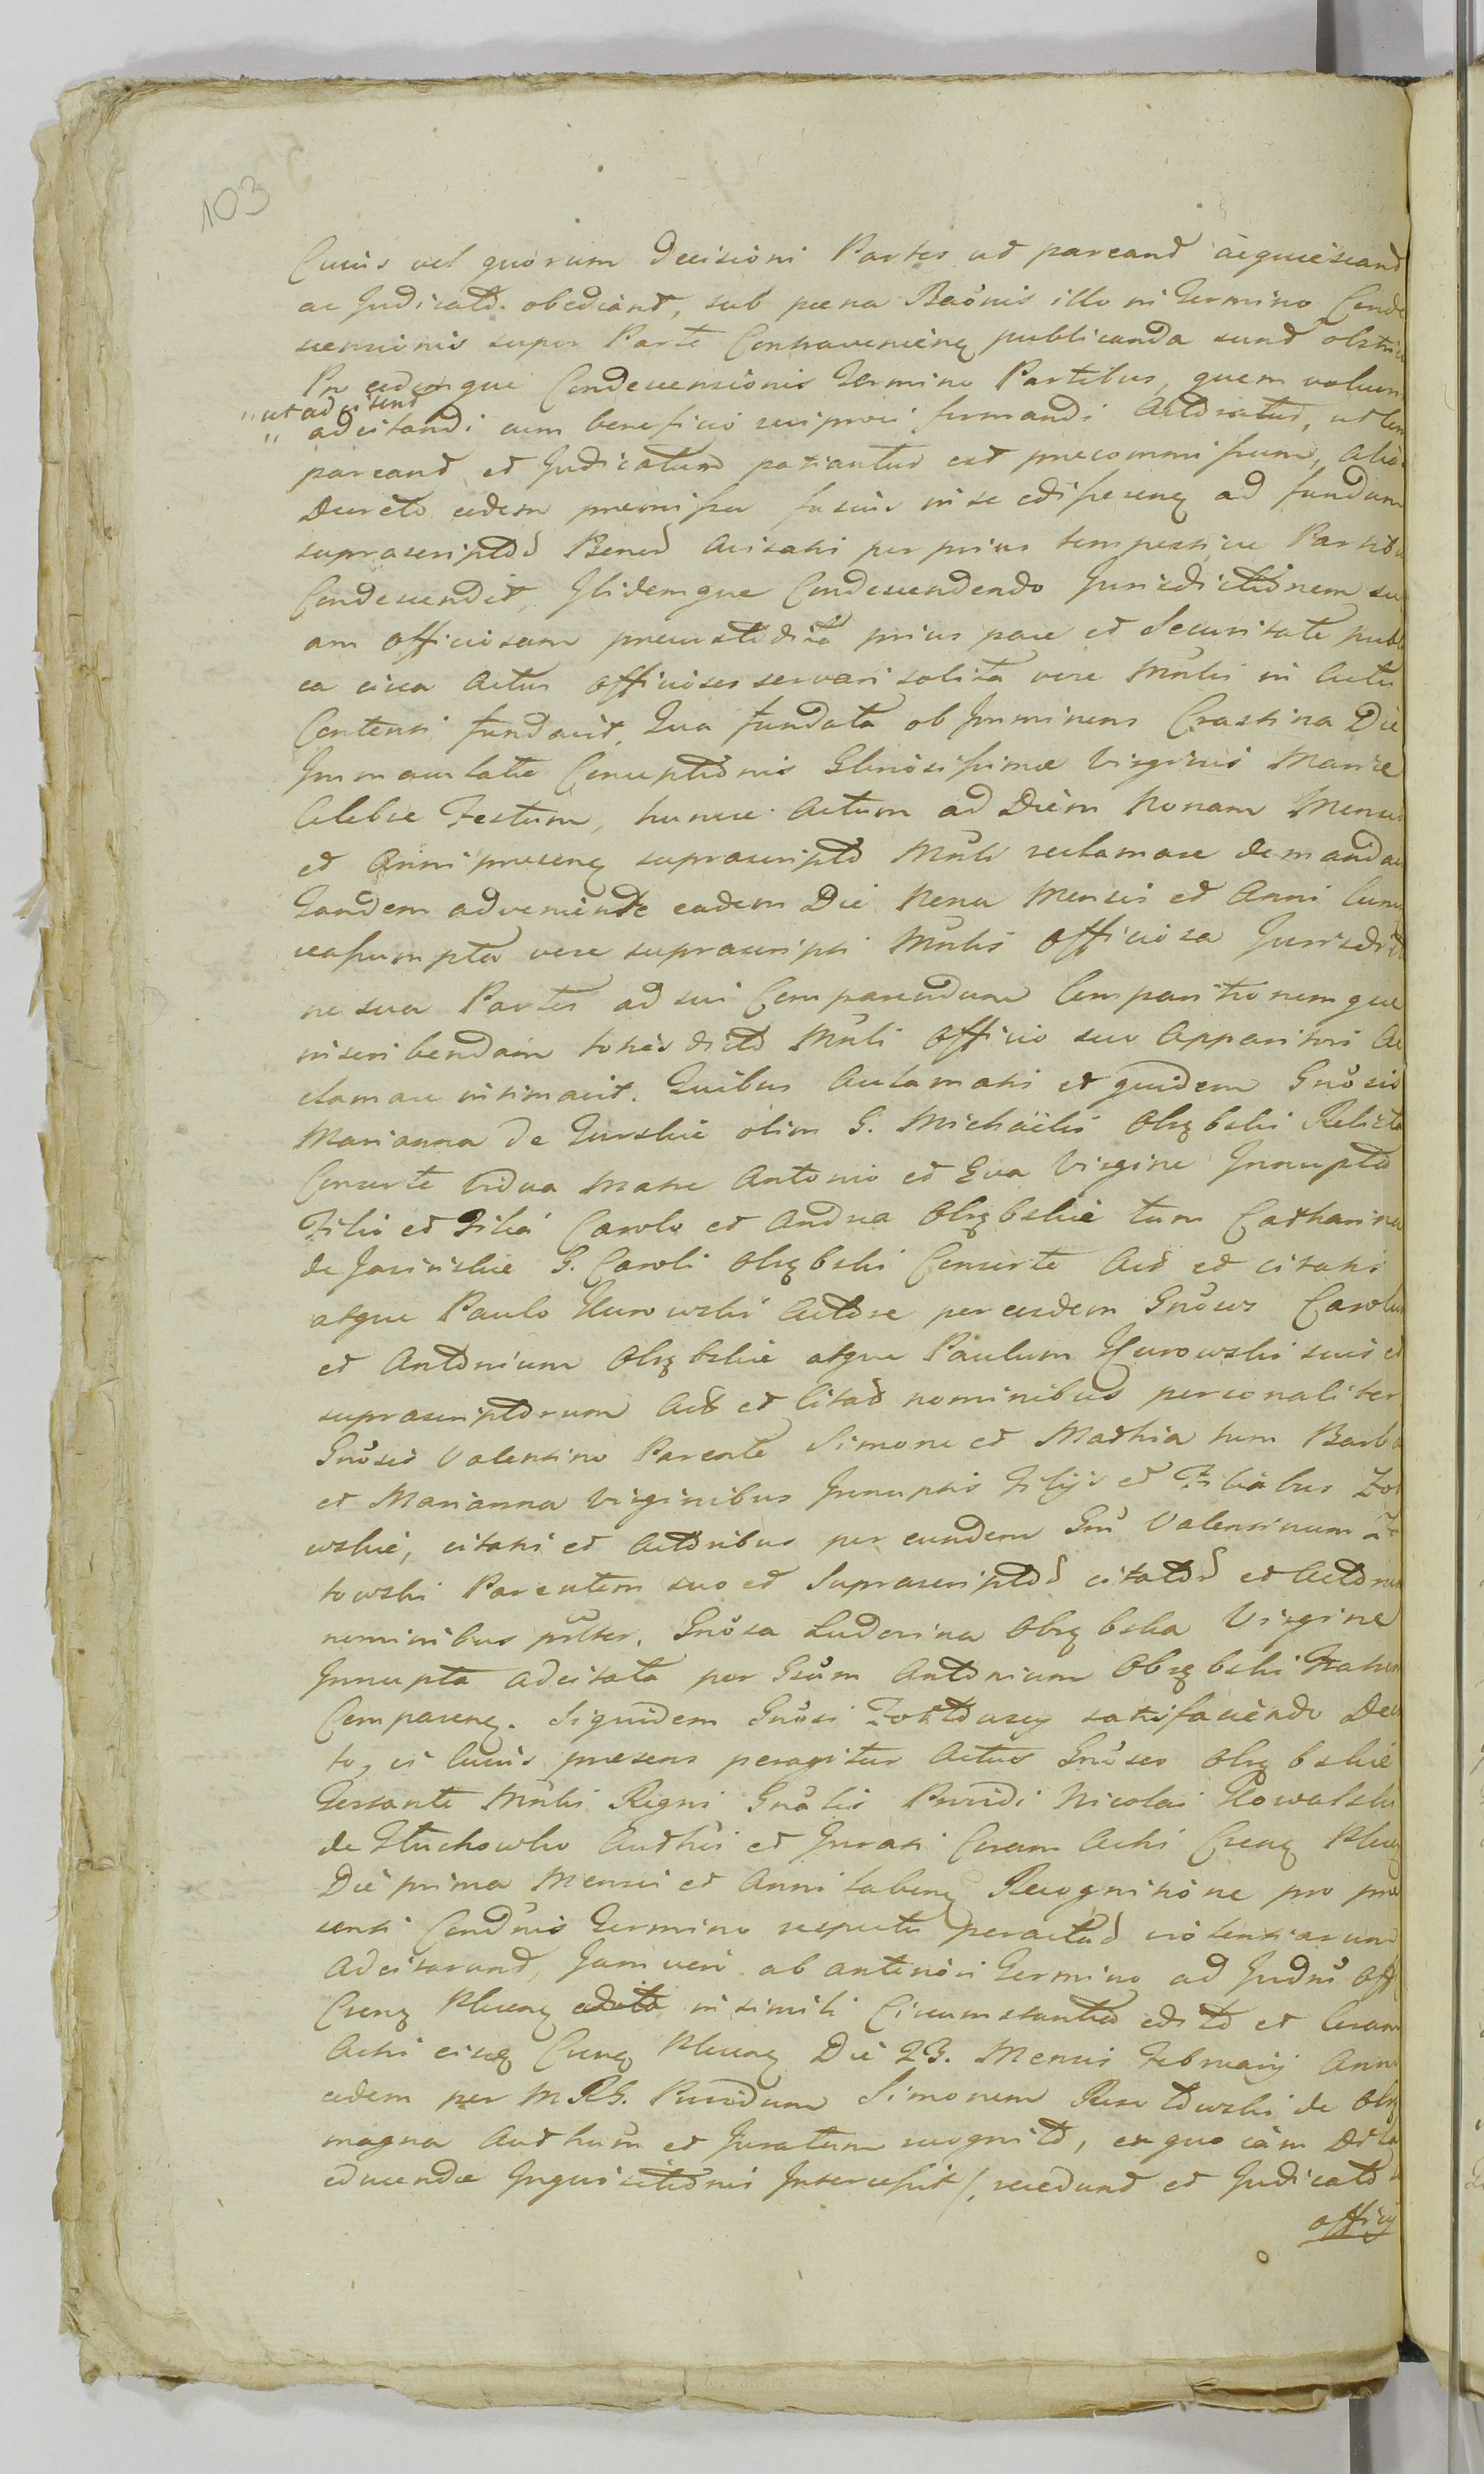 103
Cuius vel quorum Decisioni Partes ut pareant acquiescant
ac Judicato obediant, sub poena Baõnis illo in Termino Conde
scensionis super Parte Contraveniẽn publicanda sunt obstri
In eodemque Condescensionis Termino Partibus, quem volunt
"ut adcitent
adcitandi cum beneficio reciproci firmandi Actoratus, ut
pareant et Judicatum patiantur est praecommissum, alio
Decreto eodem praemissa fusius in se edisseren ad fundum
suprascriptor Bonor Avisati per prius tempestive Partib
Condescendit, Ibidemque Condescendendo Jurisdictionem su
am officiosam praecustodita prius pace et Securitate publi
ca circa Actus officiosos servari solita vice Mnli in Actu
Contenti fundavit, Qua fundata ob Imminens Crastina Die
Immaculatae Conceptionis Gloriosissimae Virginis Mariae
Celebre Festum, hunce Actum ad Diem Nonam Mensis
et Anni praesen suprascripto Mnli reclamare demandav
Tandem adveniente eadem Die Nona Mensis et Anni
reassumpta vice suprascripti Mnlis officiosa Jurisdictio
ne sua Partes ad sui Comparendum Comparitionemque
inscribendam toties dicto Mnli officio suo Apparitori Ac
clamare intimavit. Quibus Acclamatis et quidem Gnosis
Marianna de Turskie olim G. Michaelis Obrębski Relicta
Consorte Vidua Matre Antonio et Eva Virgine Innupta
Filio et Filia Carolo et Andrea Obrębskie tum Catharina
de Jasinskie G. Caroli Obrębski Consorte Act et citatis
atque Paulo Kurowski Actore per eosdem Gnosos Carolum
et Antonium Obrębskie atque Paulum Kurowski suis et
suprascriptorum Act et Citat nominibus personaliter
Gnosis Valentino Parente Simone et Mathia tum Barba
et Marianna Virginibus Innuptis Filijs et Filiabus Zot
wskie, citatis et Actoribus per eundem Gnu Valentinum
towski Parentem suo et Suprascriptor citator et Actorum
nominibus pnlter. Gnosa Ludovina Obrębska Virgine
Innupta adcitata per Gsum Antonium Obrębski Fratrem
Comparen. Siquidem Gnosi satisfaciendo Decre
to, ex cuius praesens peragitur Actus Gnosos Obrębskie
Testante Mnlis Regni Gnalis Providi Nicolai Kowalski
de Głuchowko Authci et Jurati Coram Actis Cren
Die prima Mensis et Anni laben Recognitione pro prae
senti Condnis Termino respectu peractar violentiarum
Adcitarunt, Jam vero ab anteriori Termino ad Judm Off
Cren in simili Circumstantia edito et Coram
Actis eisd Cren Die 23. Mensis Februarij Anno
eodem per M RG. Providum Simonem de
magna Authum et Juratum recognito, ex quo iam
educendae Inquisitionis Intercessit, recedunt et Judicato
officij